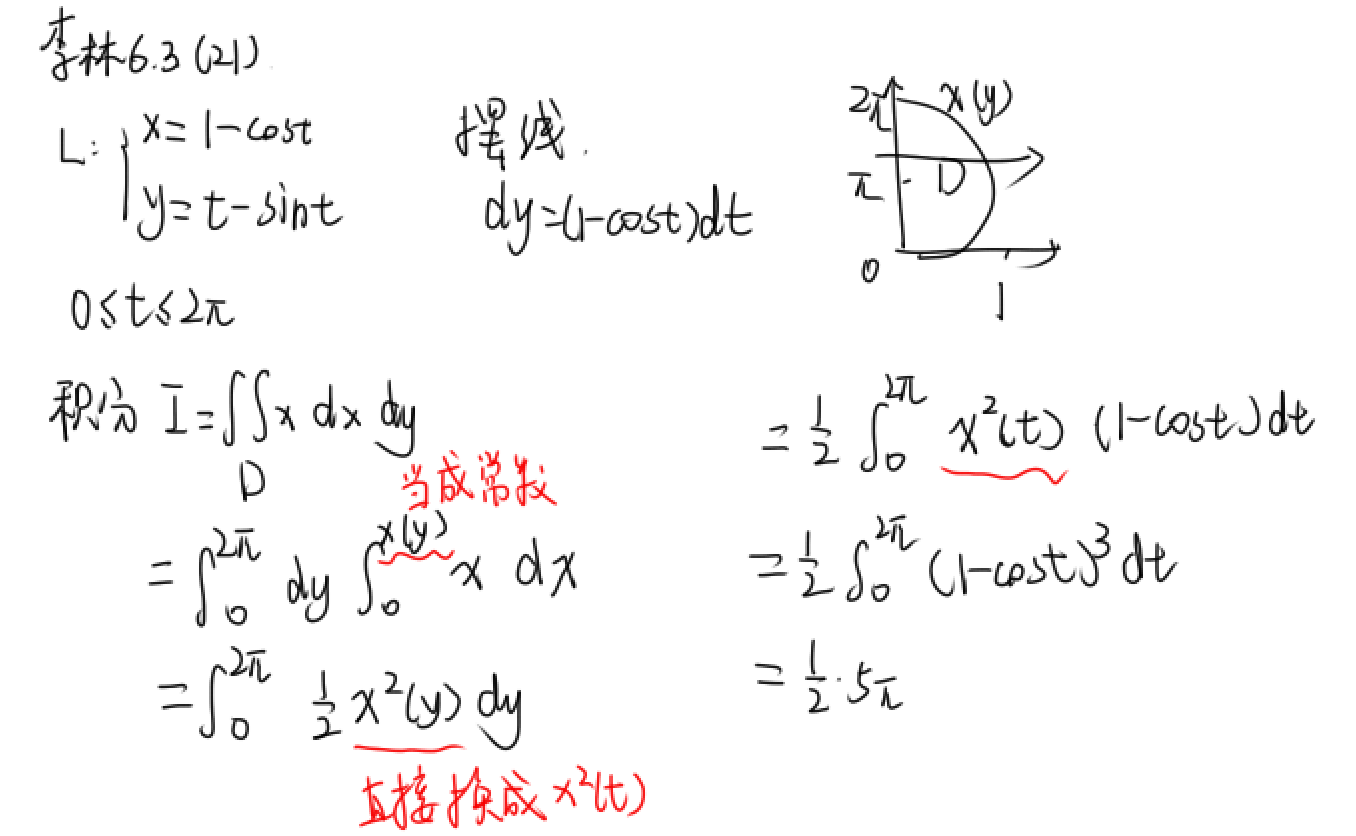 李林6.3(21)
L: { x=1-cost
y=t-sint
摆线.
dy=(1-cost)dt
0≤t≤2π
2π x(y)
π D
0 1
积分 I=∬x dx dy
D
当成常数
=∫₀^2π dy ∫₀^x(y) x dx
=∫₀^2π 1/2 x²(y) dy
直接换成x²(t)
=1/2 ∫₀^2π x²(t) (1-cost)dt
=1/2 ∫₀^2π (1-cost)³dt
=1/2·5π